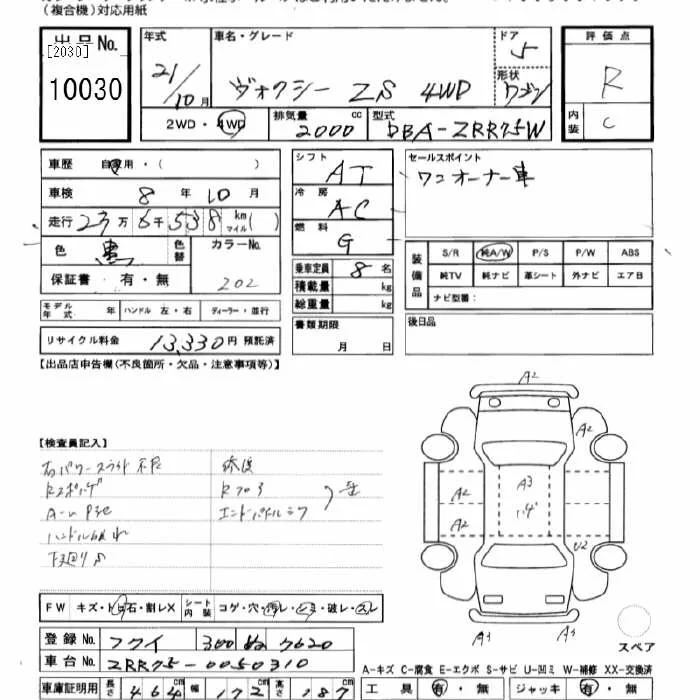 (複合機)対応用紙
出品No.
[2030]
10030
年式 21/10月
車名・グレード ヴォクシー ZS 4WD
ドア 5
形状 ワゴン
評価点 R
内装 C
2WD・4WD
排気量 2000 cc
型式 DBA-ZRR75W
車歴 自家用・( )
車検 8年10月
走行 23万6千538 km マイル( )
色 黒 色替
カラーNo. 202
保証書 有・無
モデル年式 年 ハンドル 左・右 ディーラー・並行
リサイクル料金 13,330円 預託済
シフト AT
冷房 AC
燃料 G
乗車定員 8名
積載量 kg
総重量 kg
書類期限 月 日
セールスポイント
ワンオーナー車
装備品
S/R 純A/W P/S P/W ABS
純TV 純ナビ 革シート 外ナビ エアB
ナビ型番:
後日品
【出品店申告欄(不良箇所・欠品・注意事項等)】
【検査員記入】
右パワースライド不良
修復
エンドパネル
下廻りS
A2
A2
A2
A3
A2
U2
FW キズ・トビ石・割レX シート内装 コゲ・穴・汚レ・シミ・破レ・スレ
登録No. フクイ 300 ぬ 7620
車台No. ZRR75-0050310
スペア
A-キズ C-腐食 E-エクボ S-サビ U-凹ミ W-補修 XX-交換済
車庫証明用 長さ 464cm 幅 172cm 高さ 187cm
工具 有・無 ジャッキ 有・無